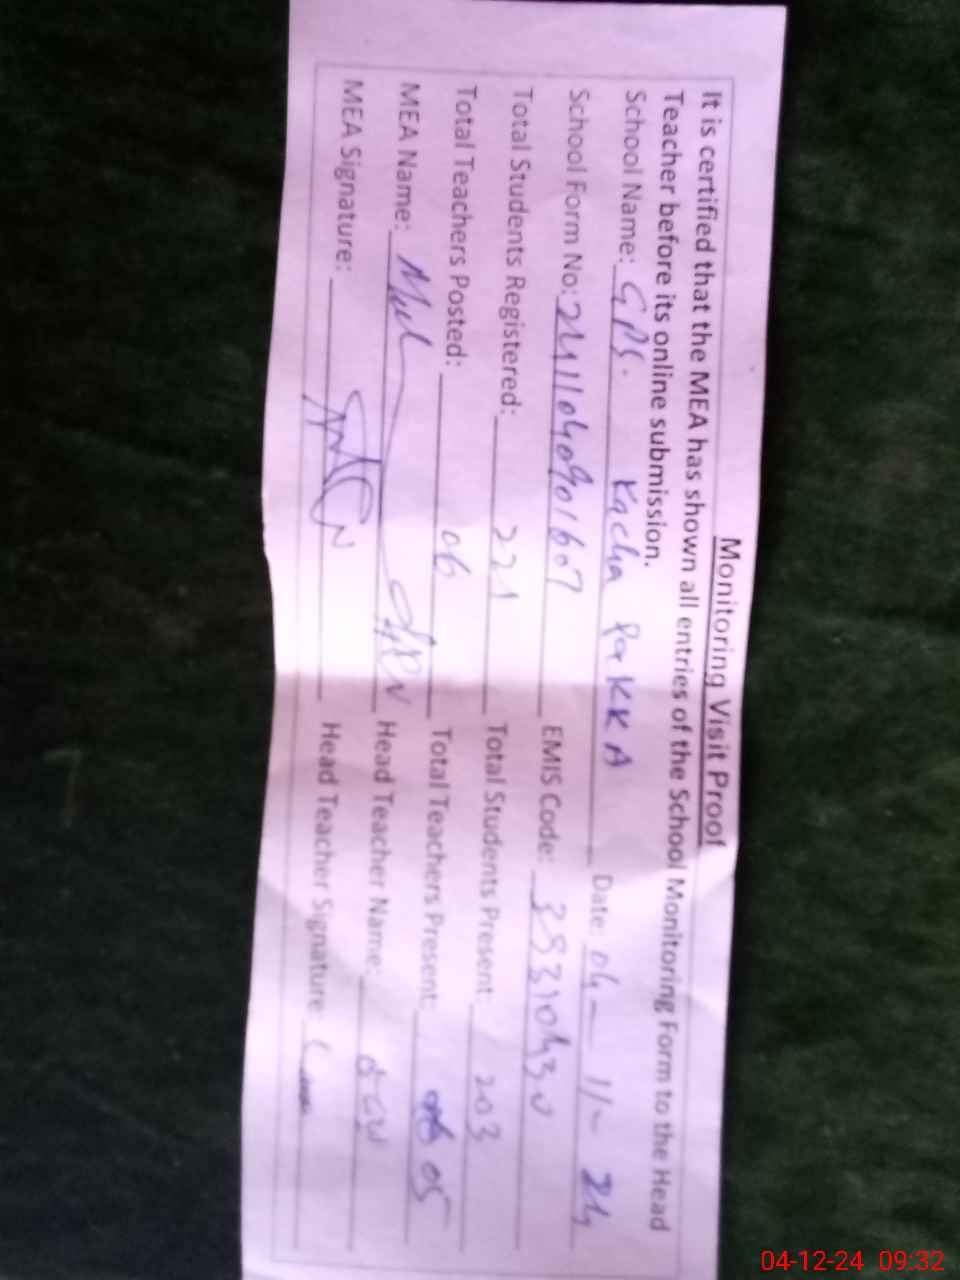 Monitoring Visit Proof
It is certified that the MEA has shown all entries of the School Monitoring Form to the Head
Teacher before its online submission.
School Name: GPS. Kacha PaKKA Date: 04-11-24
School Form No: 2411040901607 EMIS Code:
Total Students Registered: 221 Total Students Present: 203
Total Teachers Posted: 06 Total Teachers Present: 05
MEA Name: Head Teacher Name:
MEA Signature: Head Teacher Signature:
04-12-24 09:32